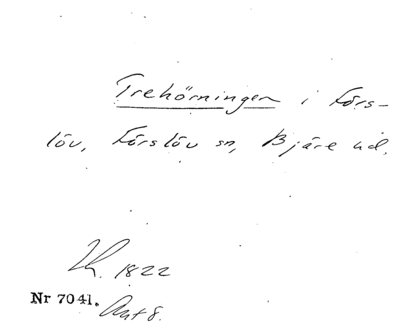 Trehörningen i Förs-
löv, Förslöv sn, Bjäre hd.
Lk. 1822
Nr 7041.
Akt 8.